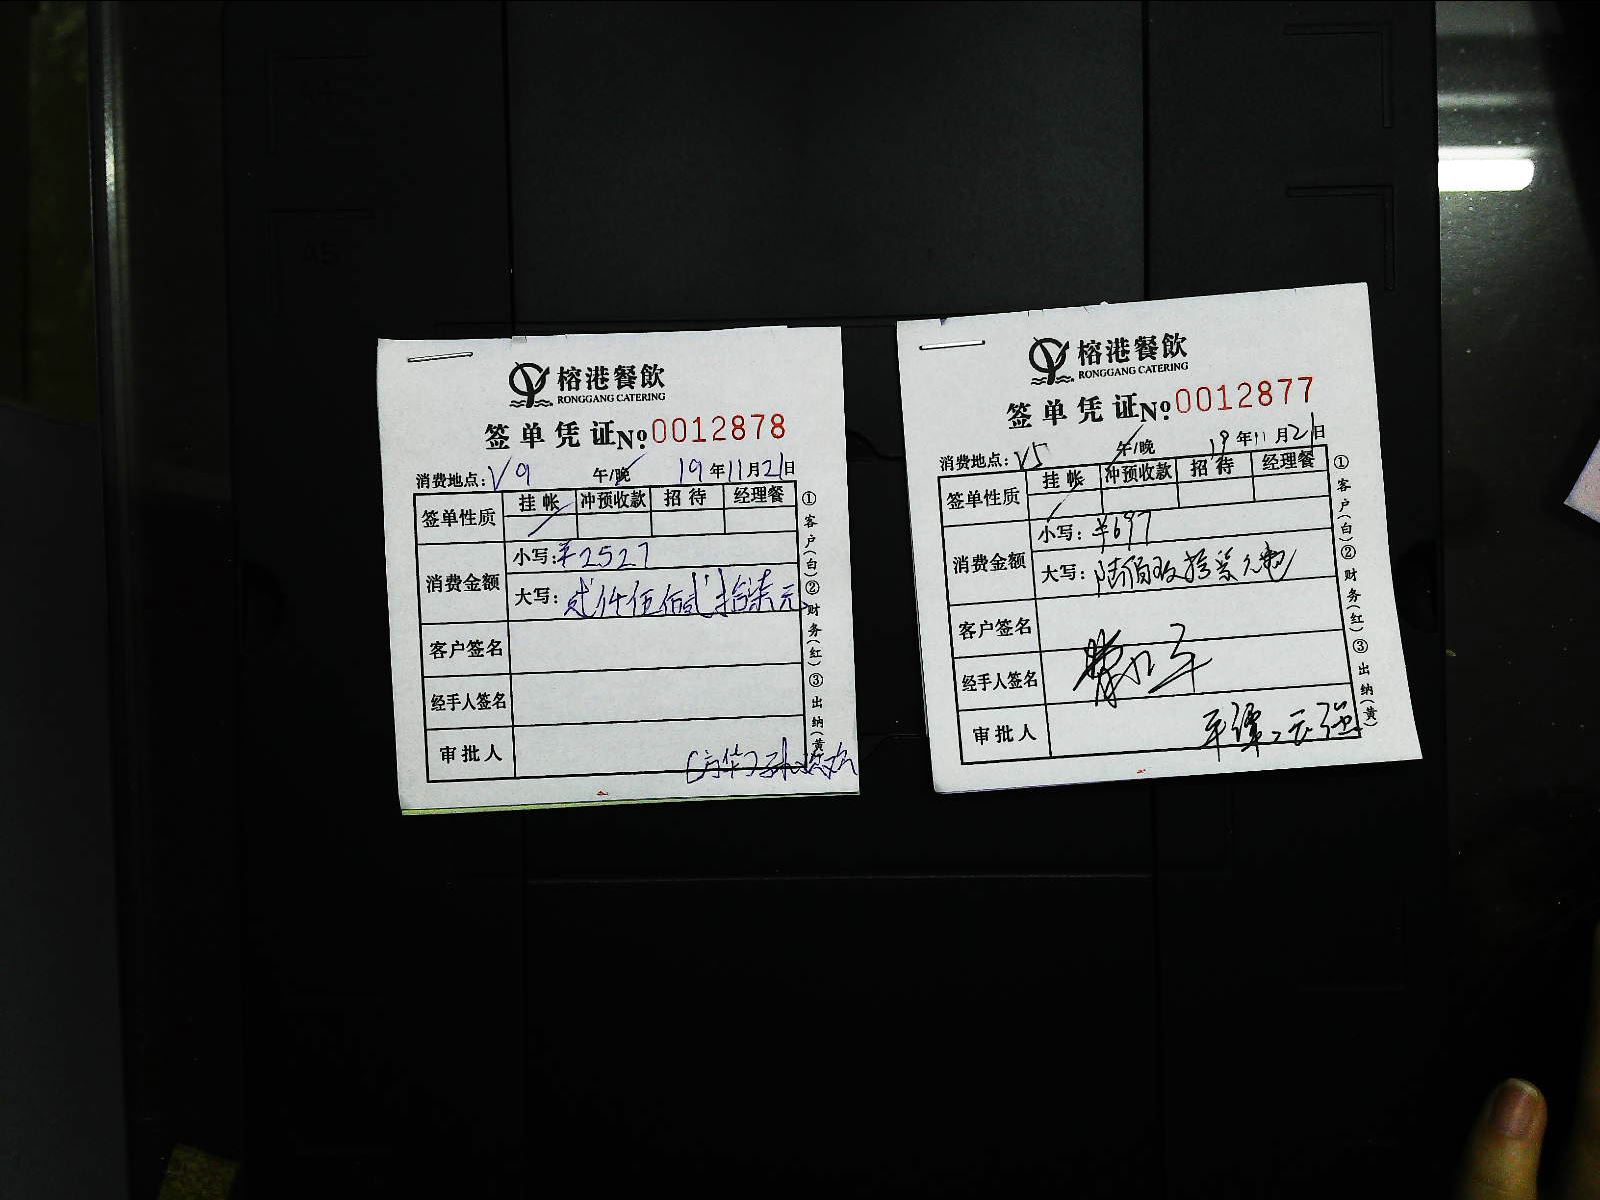 榕港餐飲
RONGGANG CATERING
签单凭证 №0012878
消费地点: V9 午/晚 19年11月21日
签单性质 挂帐 冲预收款 招待 经理餐
消费金额
小写: ¥2527
大写: 贰仟伍佰贰拾柒元
客户签名
经手人签名
审批人
①客户(白)②财务(红)③出纳(黄)
榕港餐飲
RONGGANG CATERING
签单凭证 №0012877
消费地点: V5 午/晚 19年11月21日
签单性质 挂帐 冲预收款 招待 经理餐
消费金额
小写: ¥697
大写: 陆佰玖拾柒元
客户签名
经手人签名
审批人
①客户(白)②财务(红)③出纳(黄)
A5